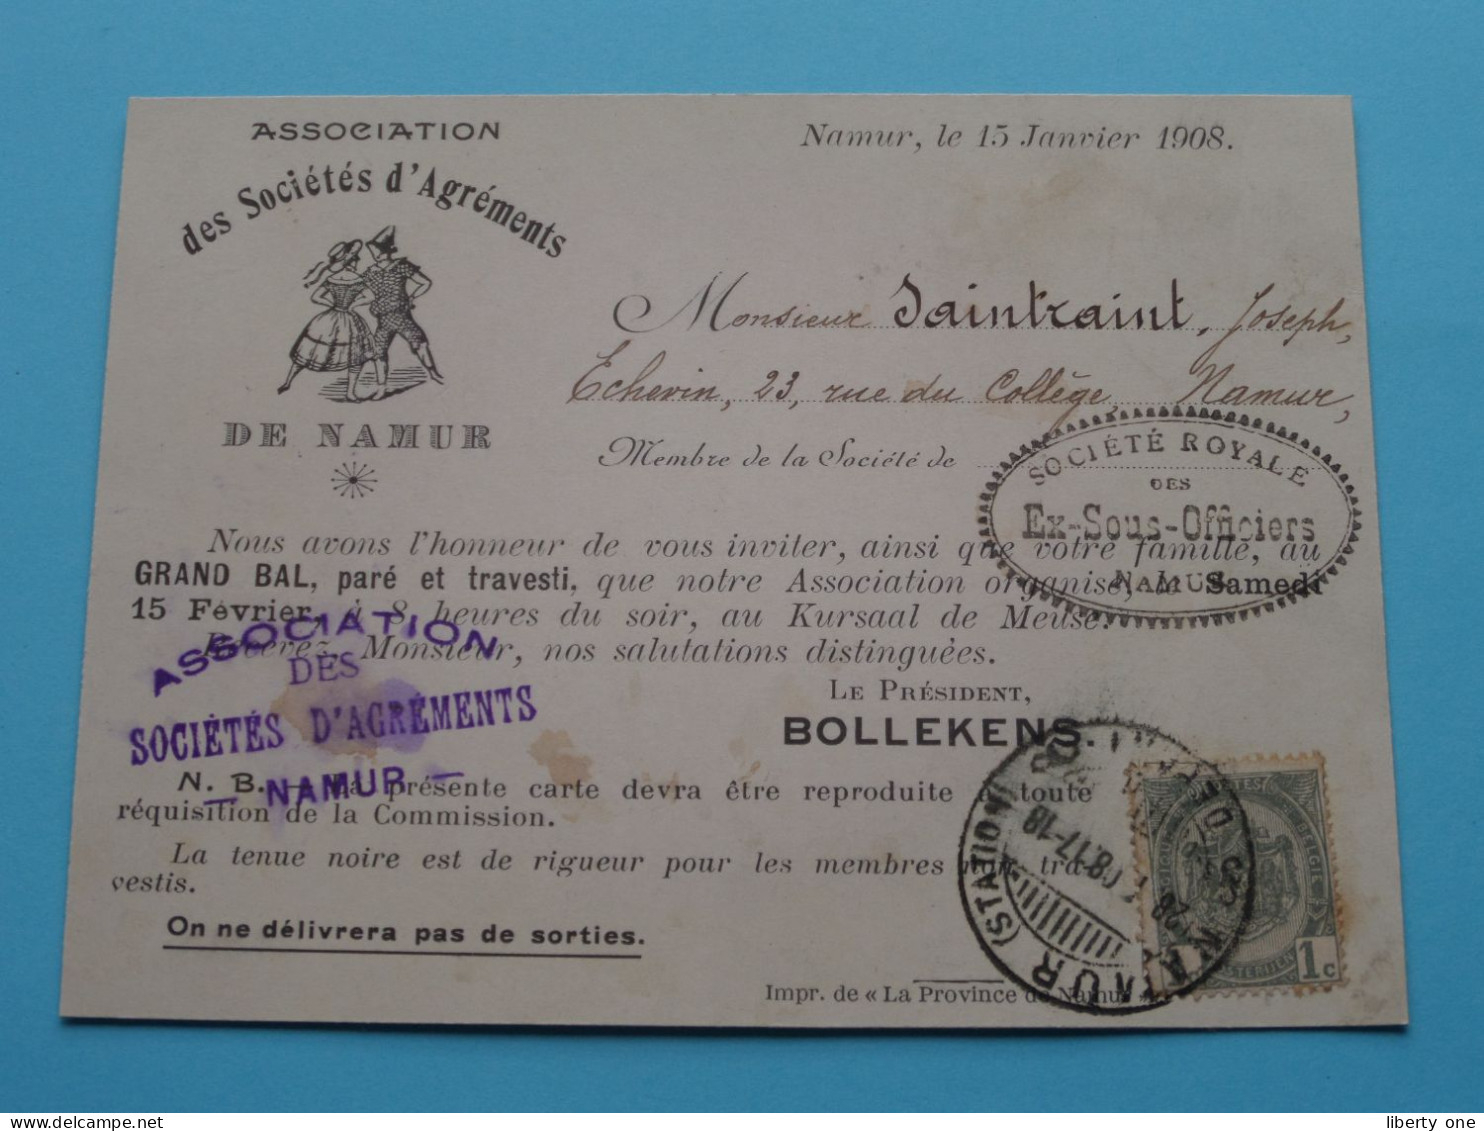 ASSOCIATION
des Sociétés d'Agréments
DE NAMUR
Namur, le 15 Janvier 1908.
Monsieur Saintraint, Joseph,
Echevin, 23, rue du Collège, Namur,
Membre de la Société de
SOCIÉTÉ ROYALE
DES
Ex-Sous-Officiers
NAMUR
Nous avons l'honneur de vous inviter, ainsi que votre famille, au
GRAND BAL, paré et travesti, que notre Association organise, le Samedi
15 Février, à 8 heures du soir, au Kursaal de Meuse.
Recevez, Monsieur, nos salutations distinguées.
ASSOCIATION
DES
SOCIÉTÉS D'AGRÉMENTS
— NAMUR —
LE PRÉSIDENT,
BOLLEKENS.
N. B. — La présente carte devra être reproduite à toute
réquisition de la Commission.
La tenue noire est de rigueur pour les membres non tra-
vestis.
On ne délivrera pas de sorties.
NAMUR (STATION)
17-18
1c
Impr. de « La Province de Namur »
liberty one